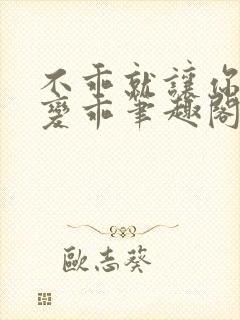 不乖就讓你
變乖筆趣閣
歐志葵